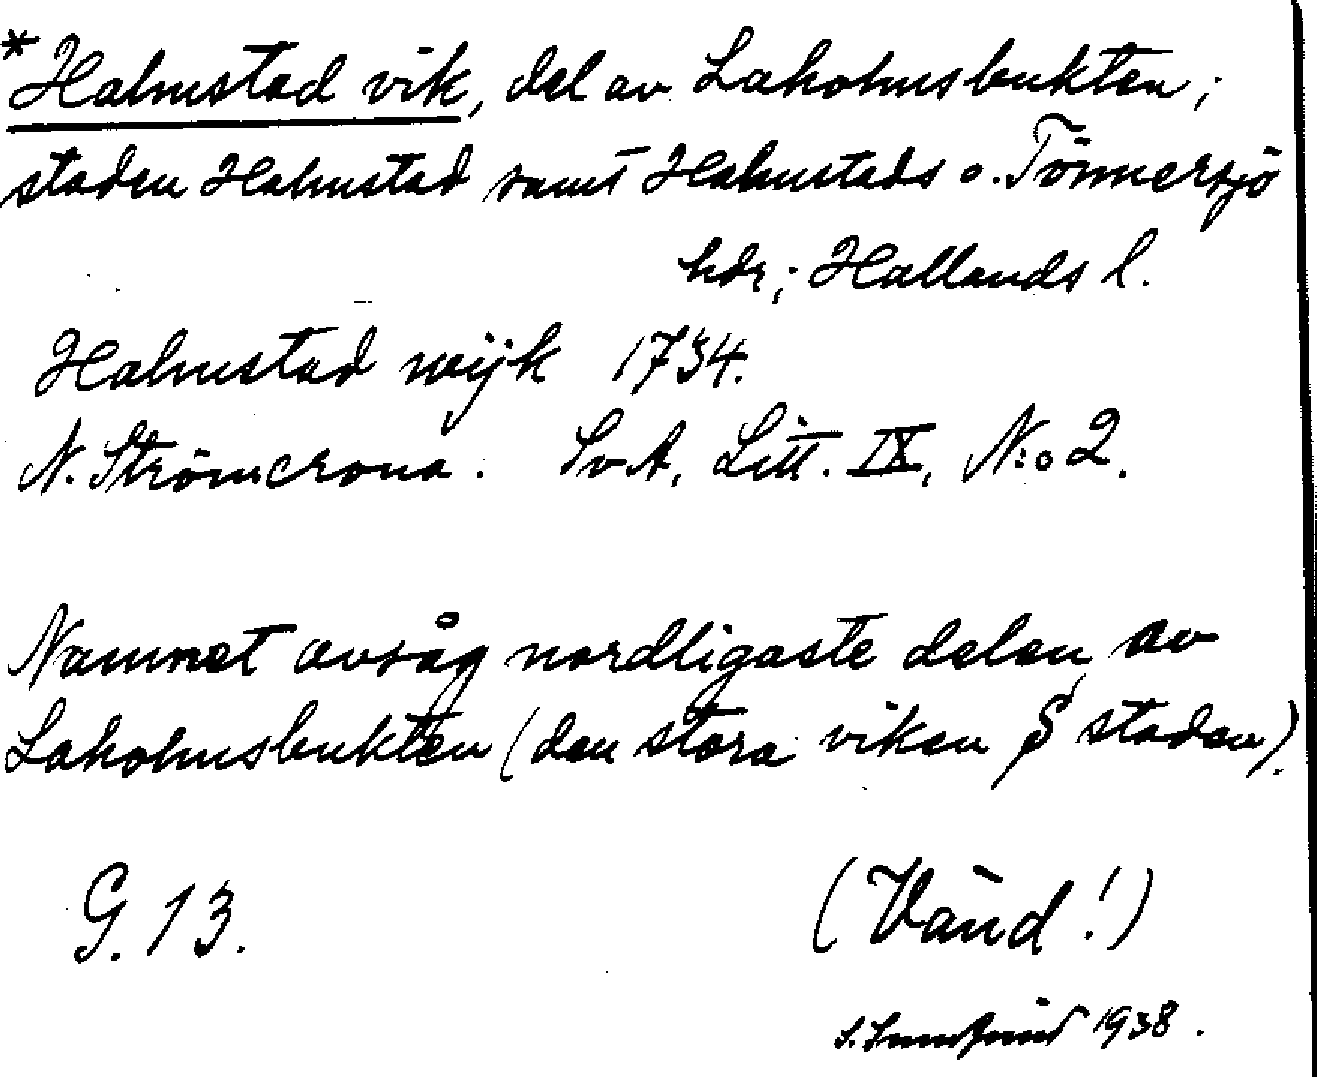 *Halmstad vik, del av Laholmsbukten;
staden Halmstad samt Halmstads o. Tönnersjö
hdr; Hallands l.
Halmstad wijk 1734.
N. Strömcrona. SvA, Litt. IX, N:o 2.
Namnet avsåg nordligaste delen av
Laholmsbukten (den stora viken S staden).
G. 13.
(Vänd!)
1938.